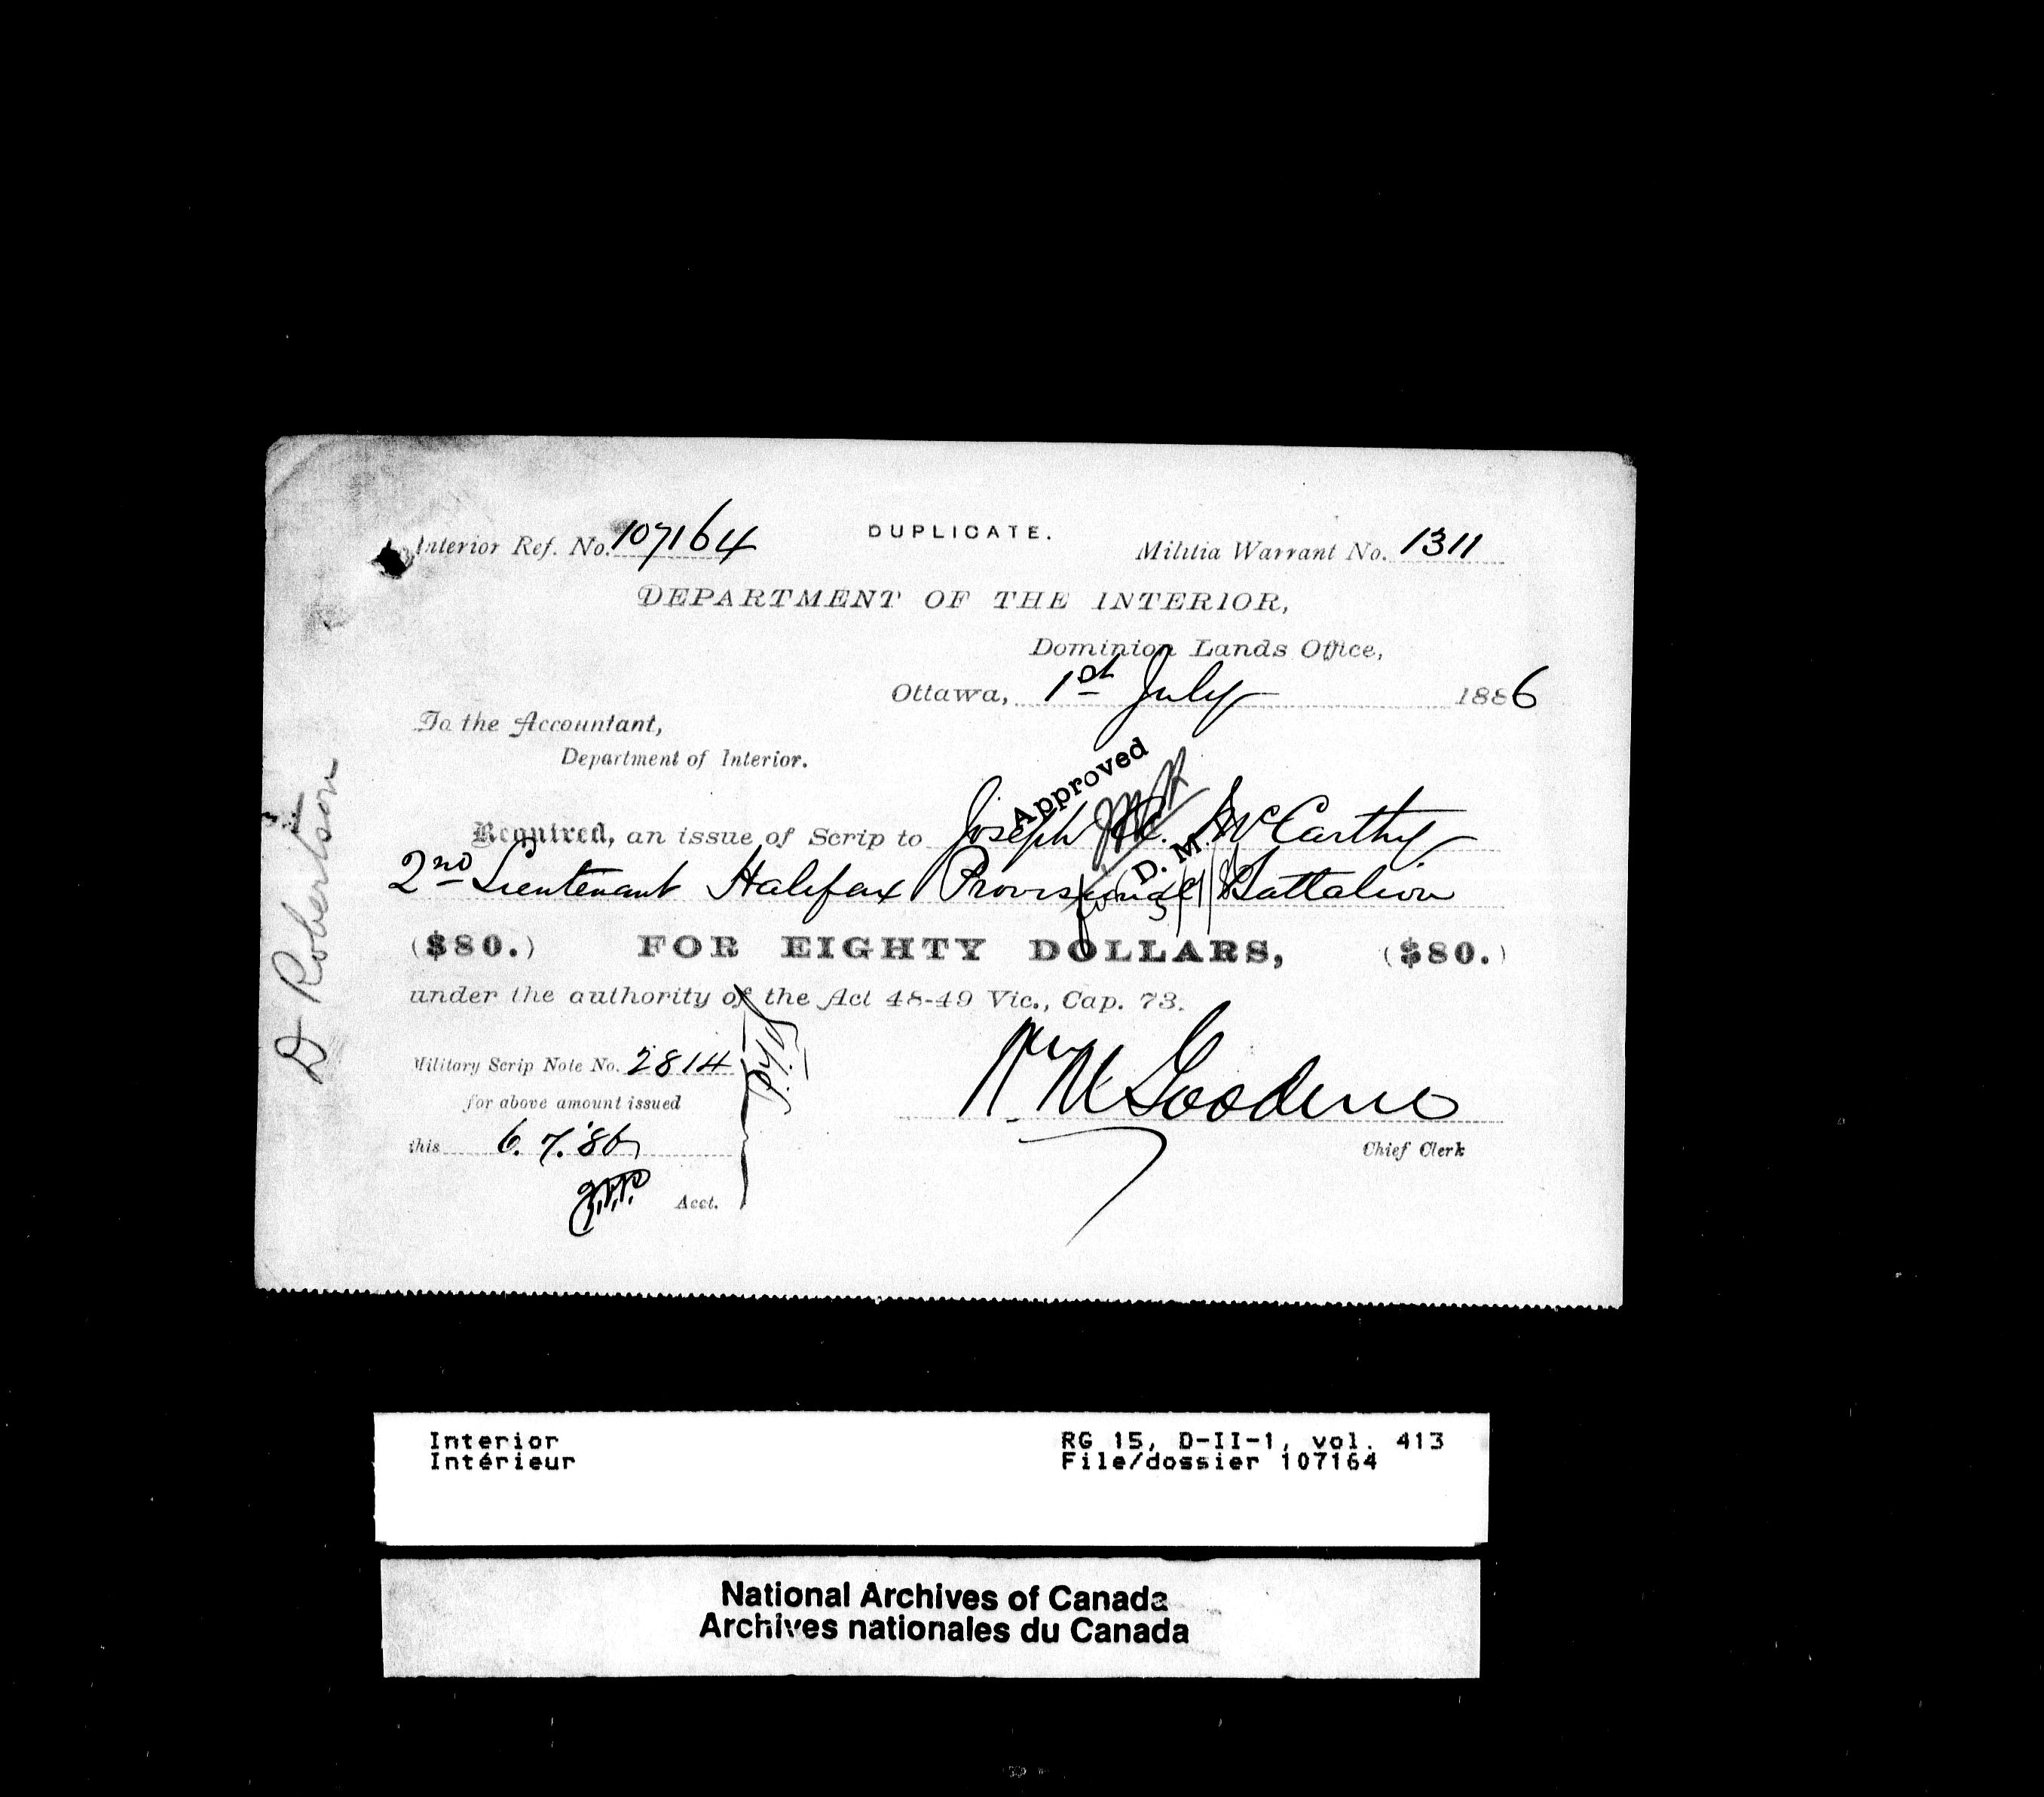 DUPLICATE.
Interior Ref. No. 107164
Militia Warrant No. 1311
DEPARTMENT OF THE INTERIOR,
Dominion Lands Office,
Ottawa, 1st July 1886
To the Accountant,
Department of Interior.
Approved
Required, an issue of Scrip to Joseph McCarthy
D. M.
2nd Lieutenant Halifax Provisional Battalion
($80.) FOR EIGHTY DOLLARS, ($80.)
under the authority of the Act 48-49 Vic., Cap. 73.
Military Scrip Note No. 2814
for above amount issued
this 6.7.'86
Acct.
Chief Clerk
D Robertson
Interior
Intérieur
RG 15, D-II-1, vol. 413
File/dossier 107164
National Archives of Canada
Archives nationales du Canada